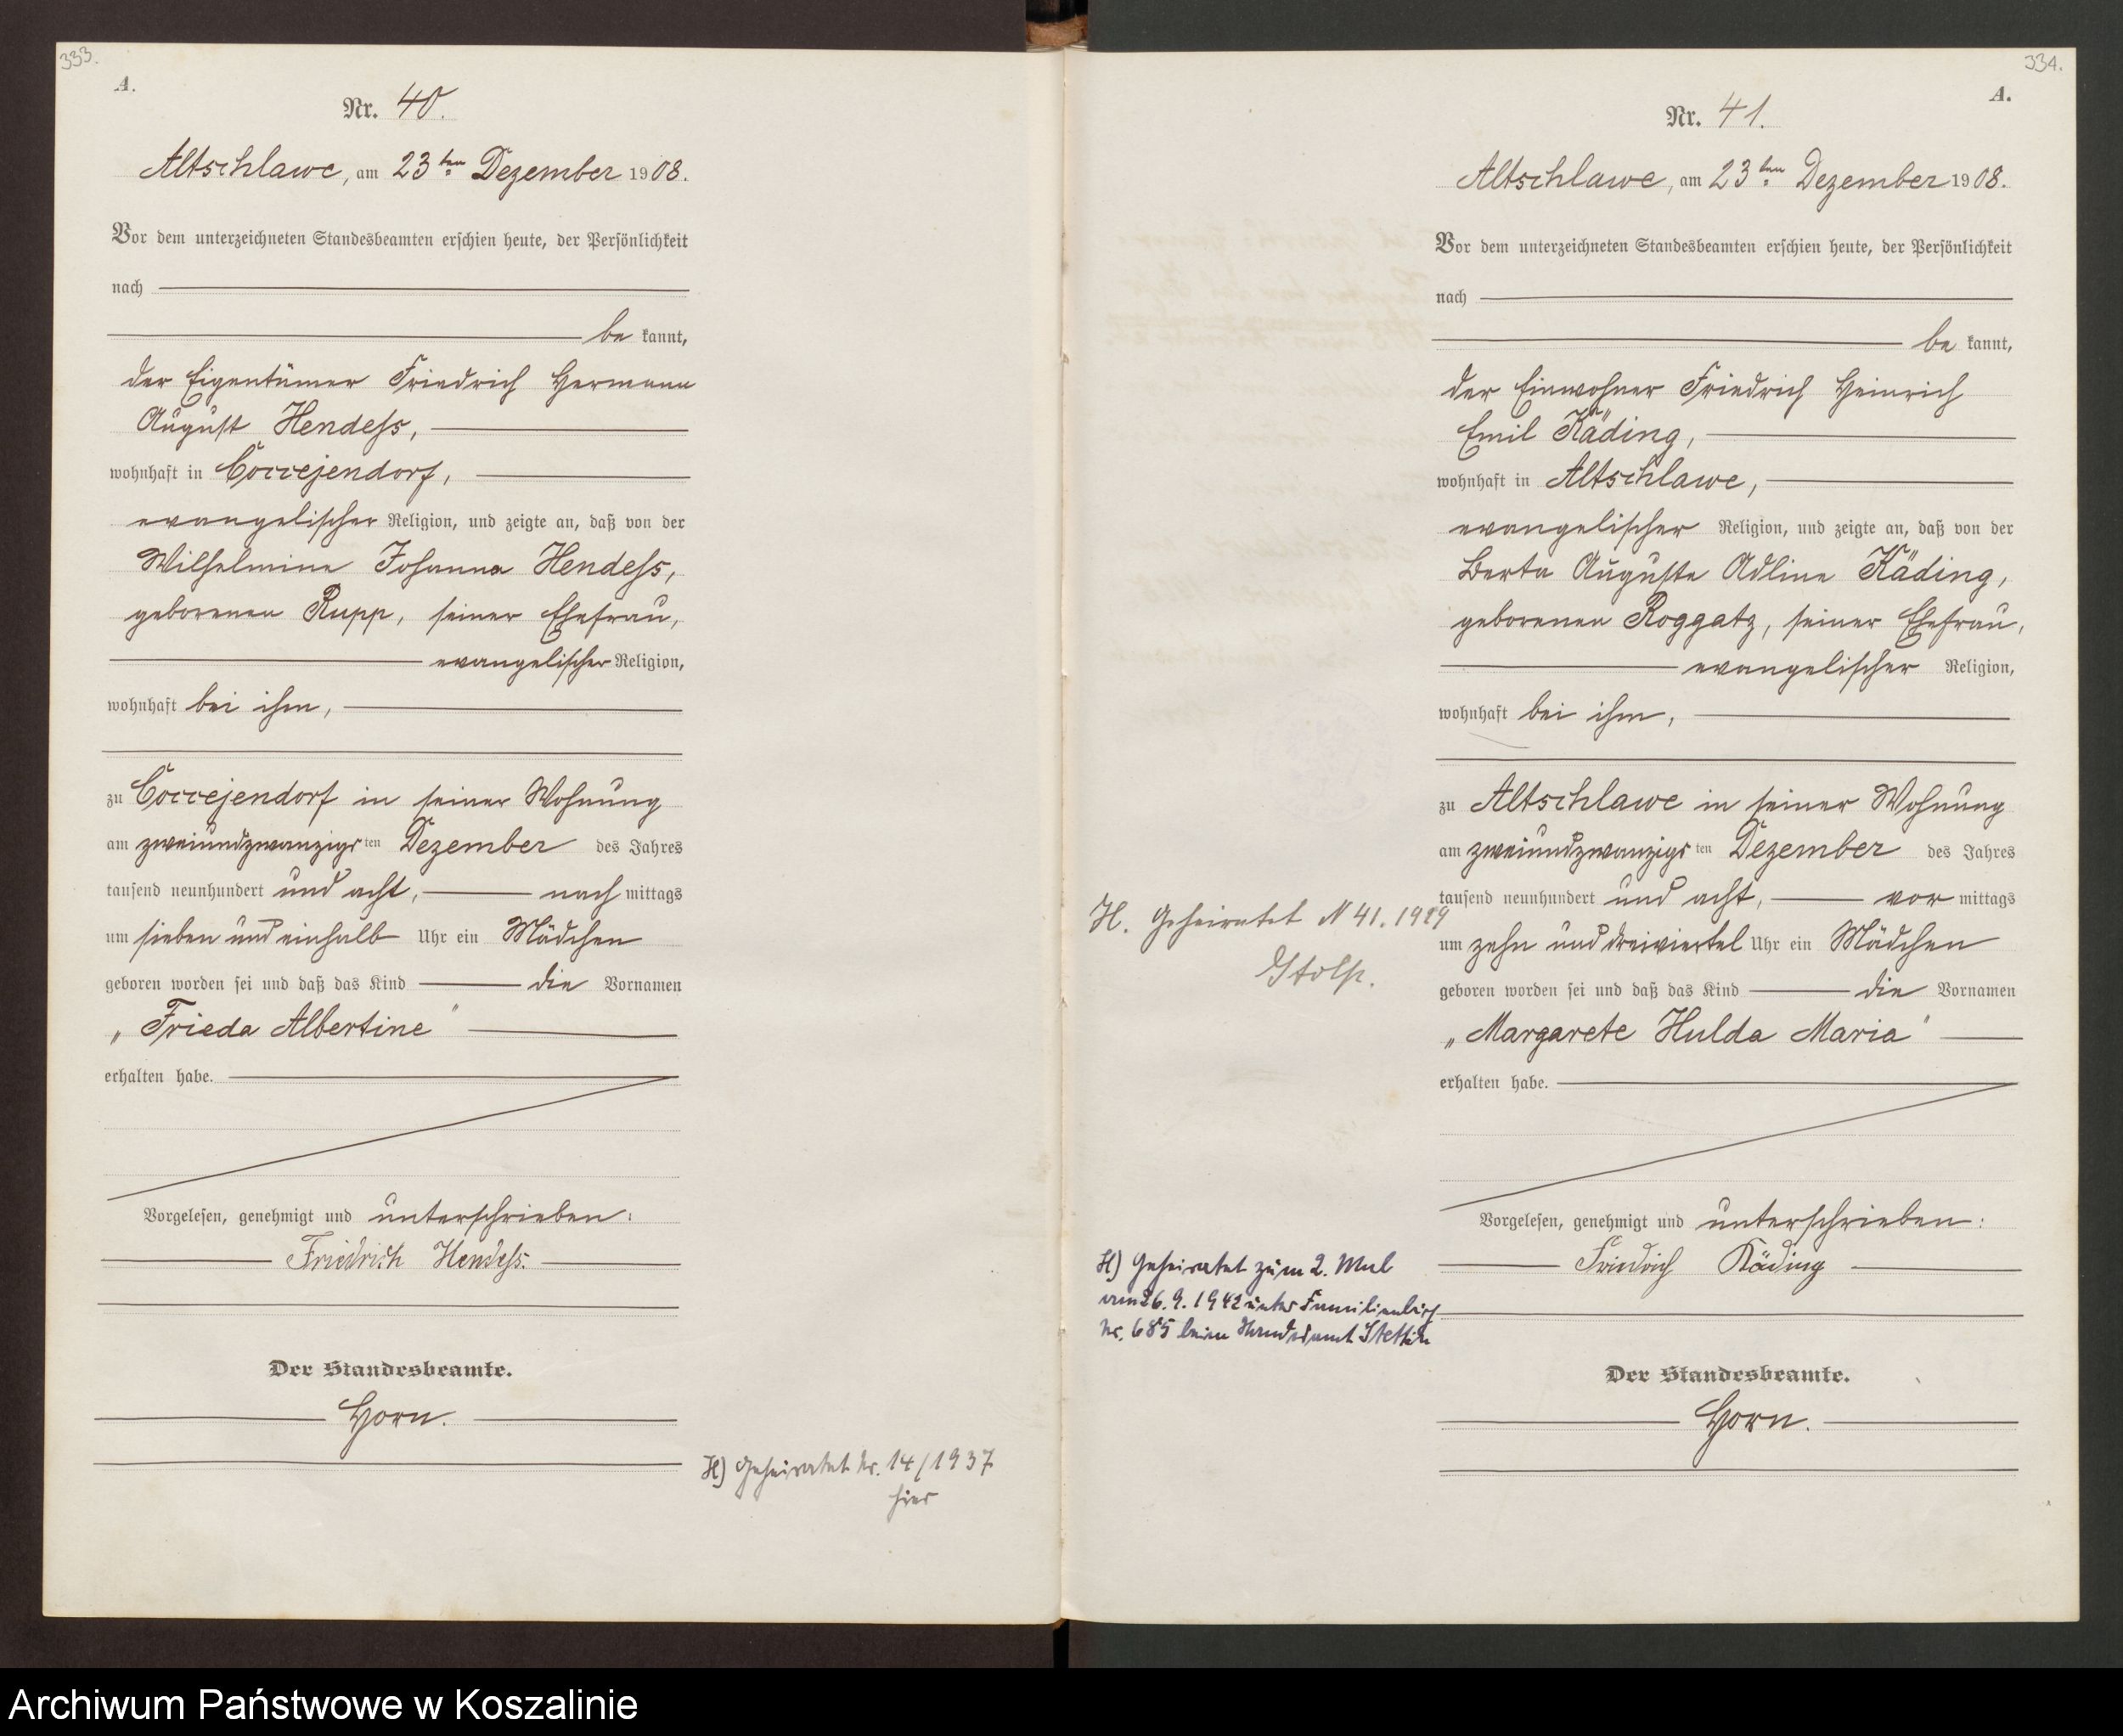 333.
A.
Nr. 40.
Altschlawe, am 23ten Dezember 1908.
Vor dem unterzeichneten Standesbeamten erschien heute, der Persönlichkeit
nach
be kannt,
der Eigentümer Friedrich Hermann
August Hendeß,
wohnhaft in Coccejendorf,
evangelischer Religion, und zeigte an, daß von der
Wilhelmine Johanna Hendeß,
geborenen Rupp, seiner Ehefrau,
evangelischer Religion,
wohnhaft bei ihm,
zu Coccejendorf in seiner Wohnung
am zweiundzwanzigsten Dezember des Jahres
tausend neunhundert und acht, nach mittags
um sieben und einhalb Uhr ein Mädchen
geboren worden sei und daß das Kind die Vornamen
„Frieda Albertine"
erhalten habe.
Vorgelesen, genehmigt und unterschrieben:
Friedrich Hendeß.
Der Standesbeamte.
Horn.
H) Geheiratet Nr. 14/1937
hier
334.
A.
Nr. 41.
Altschlawe, am 23ten Dezember 1908.
Vor dem unterzeichneten Standesbeamten erschien heute, der Persönlichkeit
nach
be kannt,
der Einwohner Friedrich Heinrich
Emil Käding,
wohnhaft in Altschlawe,
evangelischer Religion, und zeigte an, daß von der
Berta Auguste Adline Käding,
geborenen Roggatz, seiner Ehefrau,
evangelischer Religion,
wohnhaft bei ihm,
zu Altschlawe in seiner Wohnung
am zweiundzwanzigsten Dezember des Jahres
tausend neunhundert und acht, vor mittags
um zehn und dreiviertel Uhr ein Mädchen
geboren worden sei und daß das Kind die Vornamen
„Margarete Hulda Maria"
erhalten habe.
Vorgelesen, genehmigt und unterschrieben:
Friedrich Käding
Der Standesbeamte.
Horn.
H. Geheiratet N 41. 1929
Stolp.
H) Geheiratet zum 2. Mal
am 26.9.1942 unter Familienbuch
Nr. 685 beim Standesamt Stettin
Archiwum Państwowe w Koszalinie